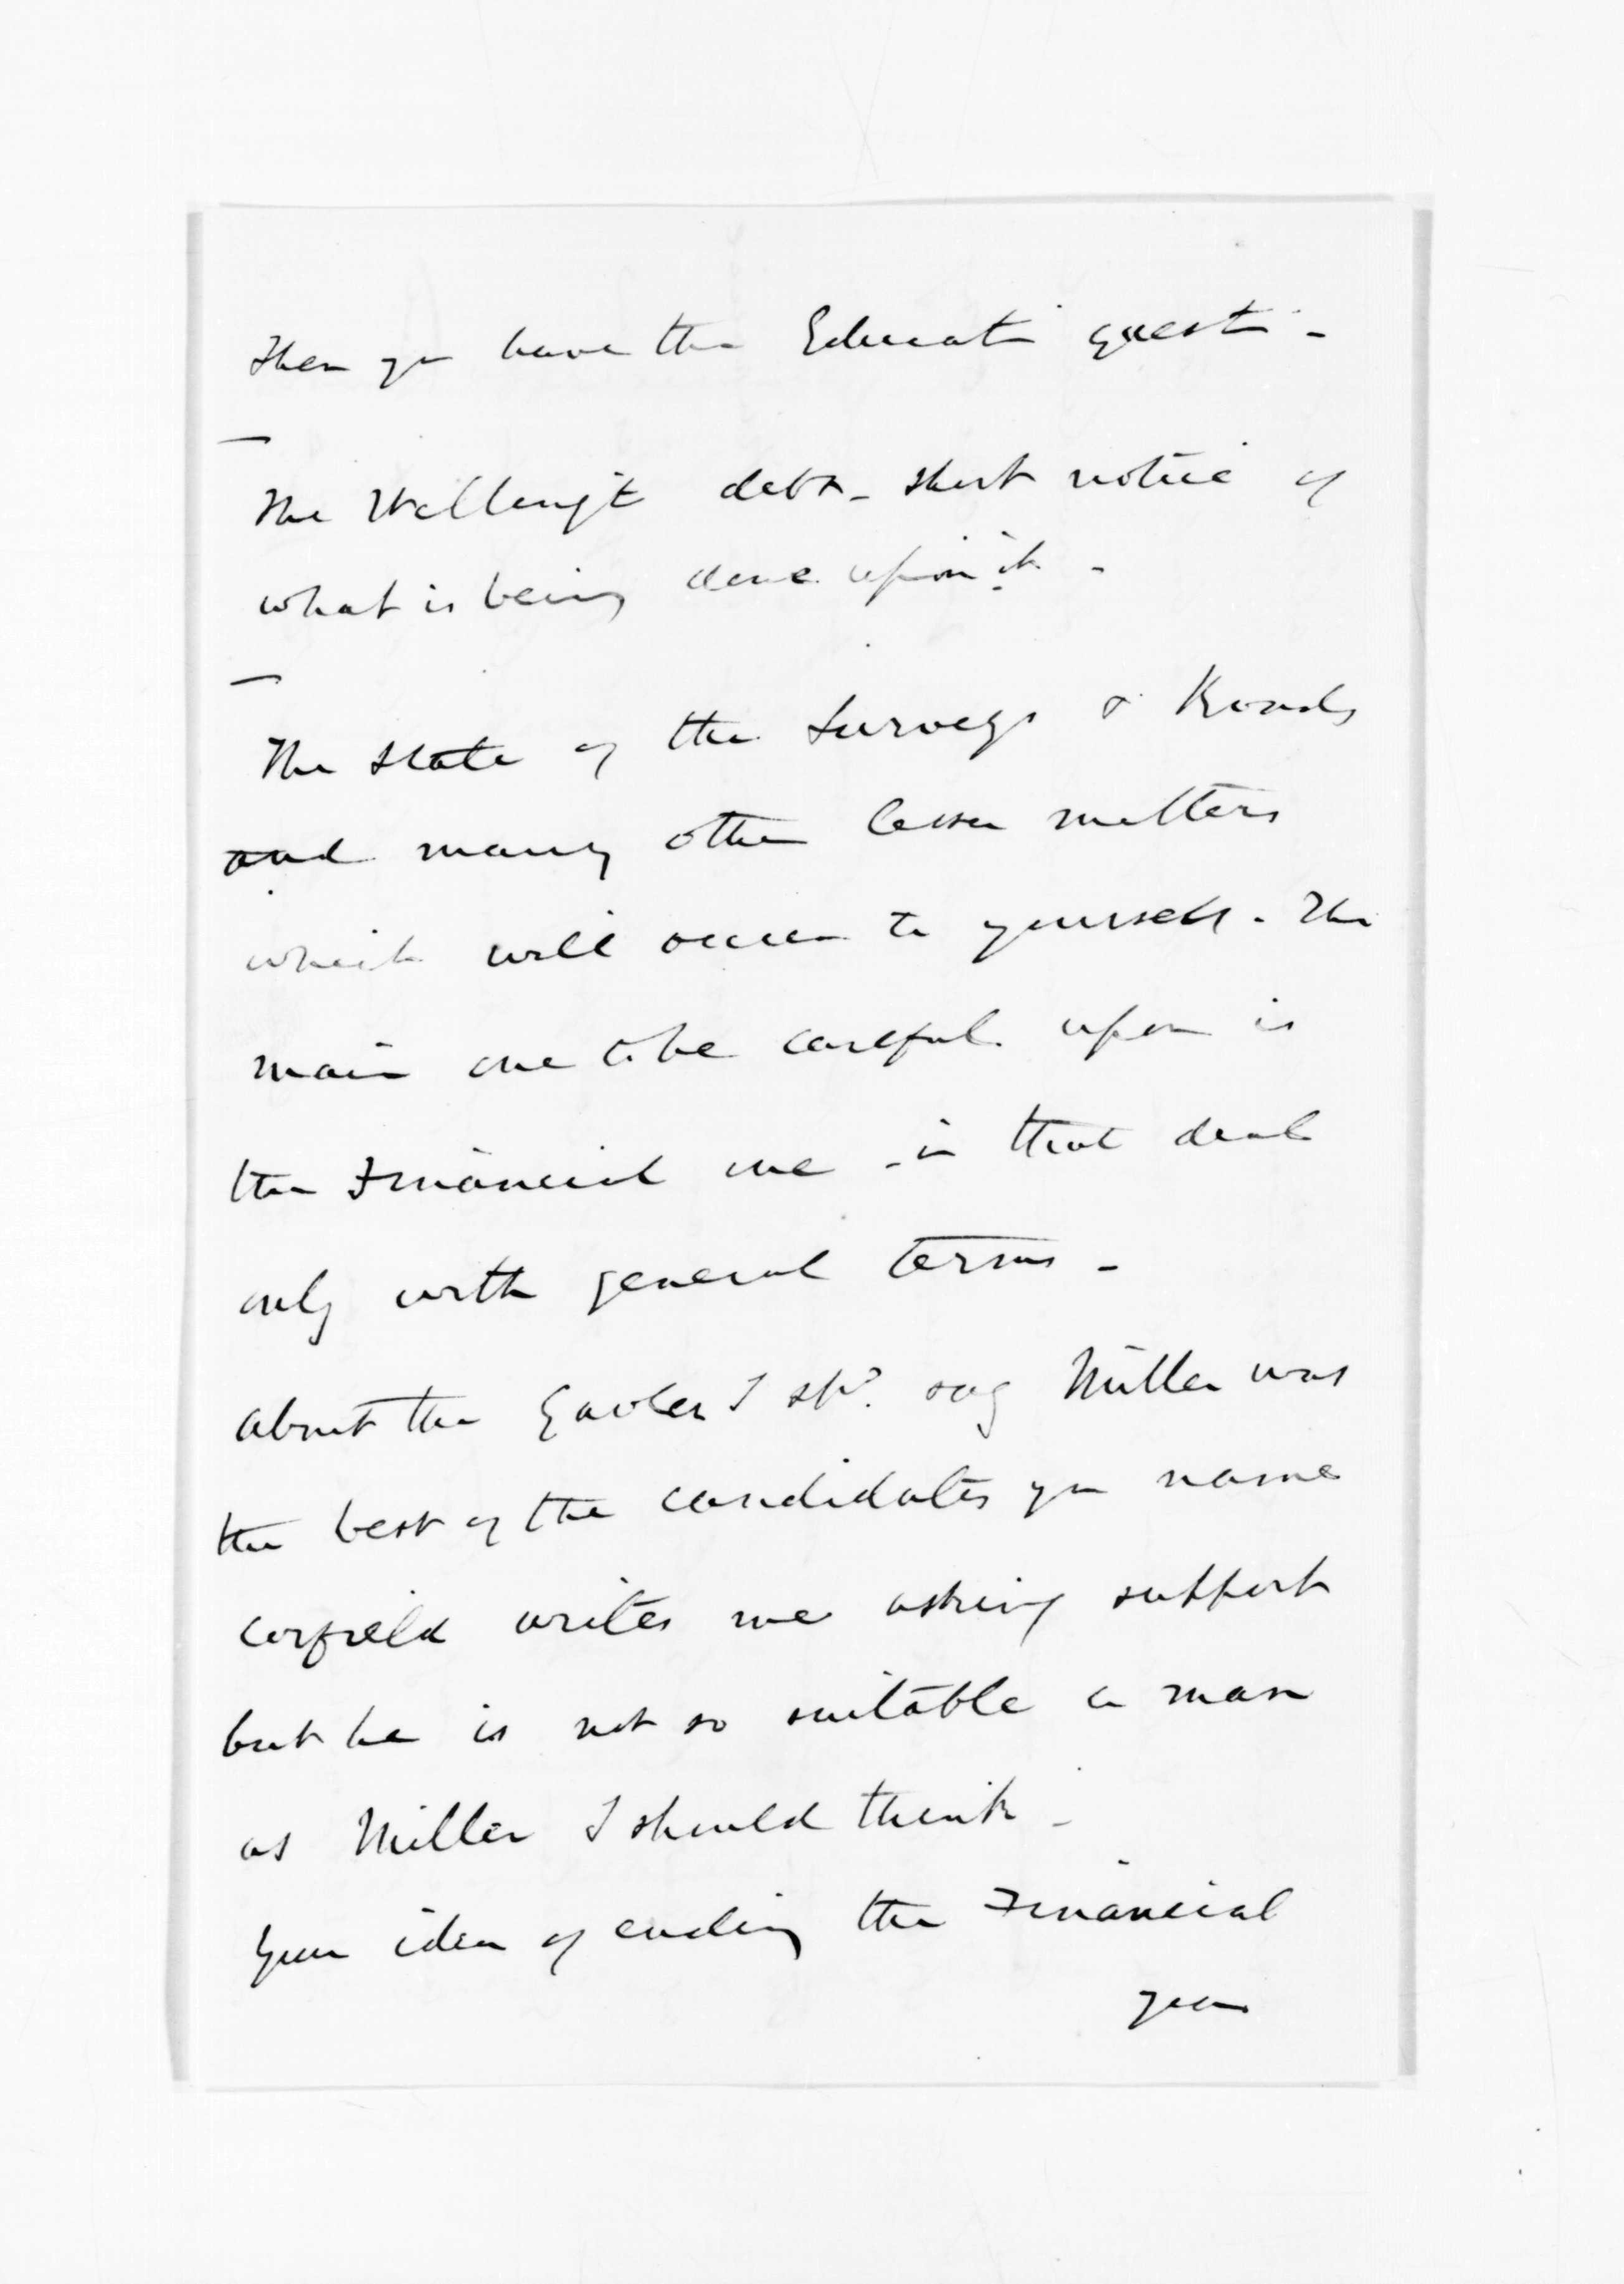 Then you have the Educatn questn -
The Wellingtn debt - short notice of
what is being done upon it -
The State of the Surveys & Roads
and many other lesser matters
which will occur to yourself. The
main one to be careful upon is
the Financial one - in that deal
only with general terms -
about the Gaoler I shd. say Miller was
the best of the candidates you name
Corfield writes me asking support
but he is not so suitable a man
as Miller I should think -
Your idea of ending the Financial
year